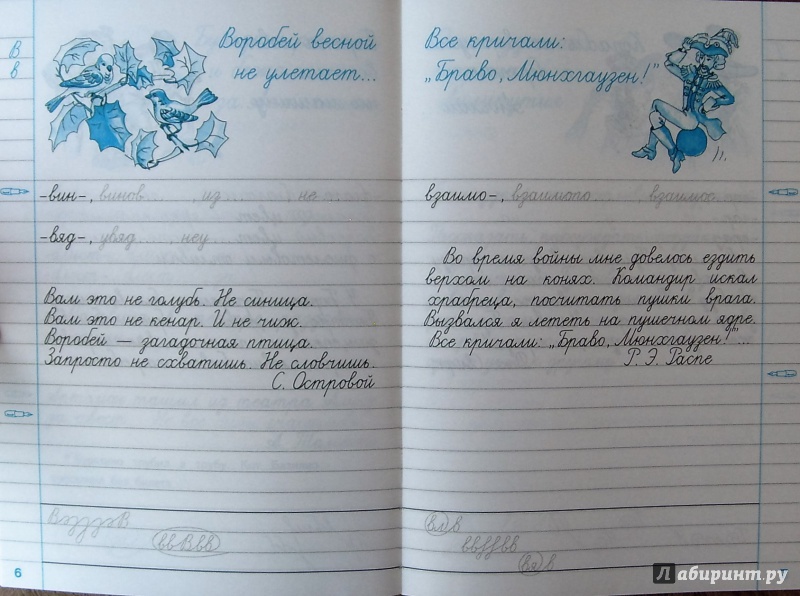 В
в
Воробей весной
не улетает...
-вин-, винов......., из......... не.........
-вяд-, увяд......, неу.........
Вам это не голубь. Не синица.
Вам это не кенар. И не чиж.
Воробей — загадочная птица.
Запросто не схватишь. Не словчишь.
С. Островой
6
Все кричали:
„Браво, Мюнхгаузен!"
взаимо-, взаимопо......., взаимос.......
Во время войны мне довелось ездить
верхом на конях. Командир искал
храбреца, посчитать пушки врага.
Вызвался я лететь на пушечном ядре.
Все кричали: „Браво, Мюнхгаузен!"...
Р. Э. Распе
Лабиринт.ру